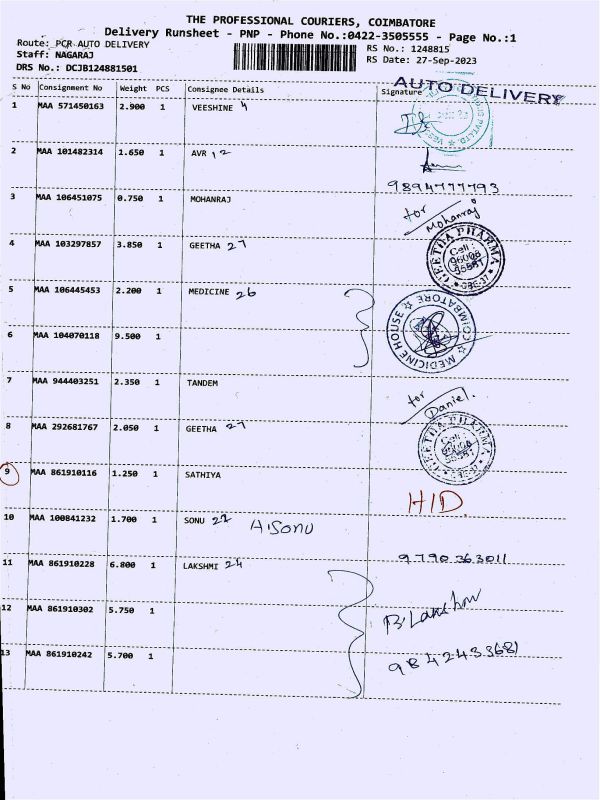 THE PROFESSIONAL COURIERS, COIMBATORE
Delivery Runsheet - PNP - Phone No.:0422-3505555 - Page No.:1
Route: PCR AUTO DELIVERY
RS No.: 1248815
Staff: NAGARAJ
RS Date: 27-Sep-2023
DRS No.: DCJB124881501
AUTO DELIVERY
S No Consignment No Weight PCS Consignee Details Signature
1 MAA 571450163 2.900 1 VEESHINE 4
2 MAA 101482314 1.650 1 AVR 12
9894777793
3 MAA 106451075 0.750 1 MOHANRAJ
for Mohanraj
4 MAA 103297857 3.850 1 GEETHA 27
GEETHA PHARMA
Cell :
CBE-37
5 MAA 106445453 2.200 1 MEDICINE 26
MEDICINE HOUSE ☆ COIMBATORE ☆
6 MAA 104070118 9.500 1
7 MAA 944403251 2.350 1 TANDEM
for Daniel.
8 MAA 292681767 2.050 1 GEETHA 27
GEETHA PHARMA
Cell :
9 MAA 861910116 1.250 1 SATHIYA
H/D.
10 MAA 100841232 1.700 1 SONU 22 A.Sonu
9790363011
11 MAA 861910228 6.800 1 LAKSHMI 24
12 MAA 861910302 5.750 1
13 MAA 861910242 5.700 1
9842433681